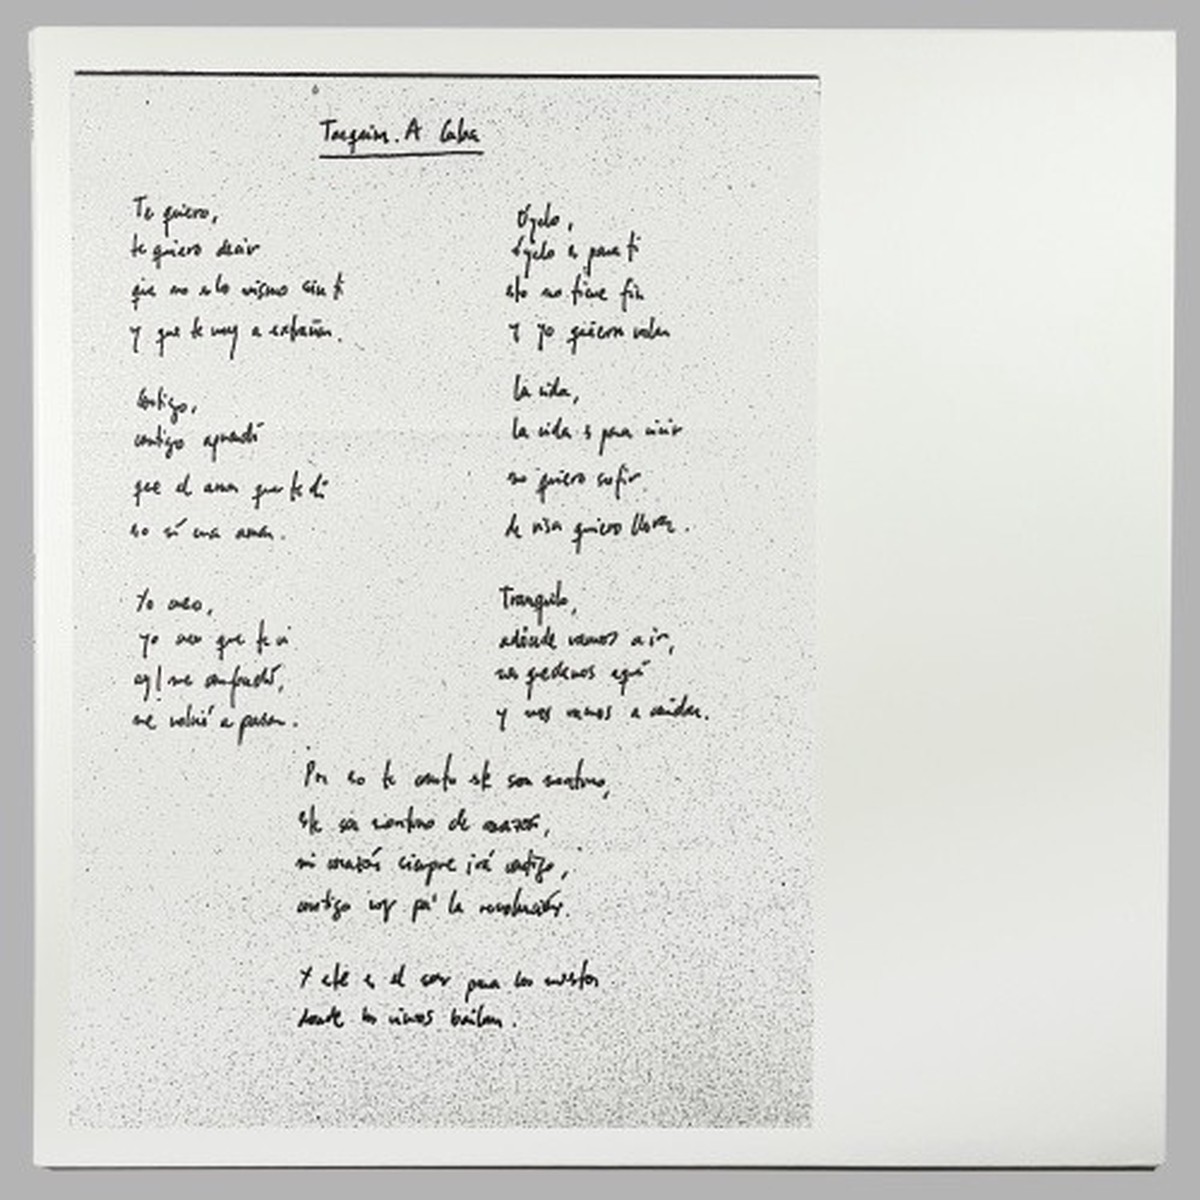 A Cuba
Te quiero,
te quiero decir
que no es lo mismo sin ti
y que te voy a extrañar.
Contigo,
contigo aprendí
que el amor que te di
no sí una amar.
Yo creo,
yo creo que te vi
ay! me confundí,
me volvió a pasar.
Óyelo,
óyelo es para ti
esto no tiene fin
y yo quiero volar
La vida,
la vida es para vivir
no quiero sufrir
de risa quiero llorar.
Tranquilo,
adónde vamos a ir,
nos quedamos aquí
y nos vamos a cuidar.
Por eso te canto este son montuno,
este son montuno de corazón,
mi corazón siempre irá contigo,
contigo voy pa' la revolución.
Y este es el son para los muertos
donde los vivos bailan.